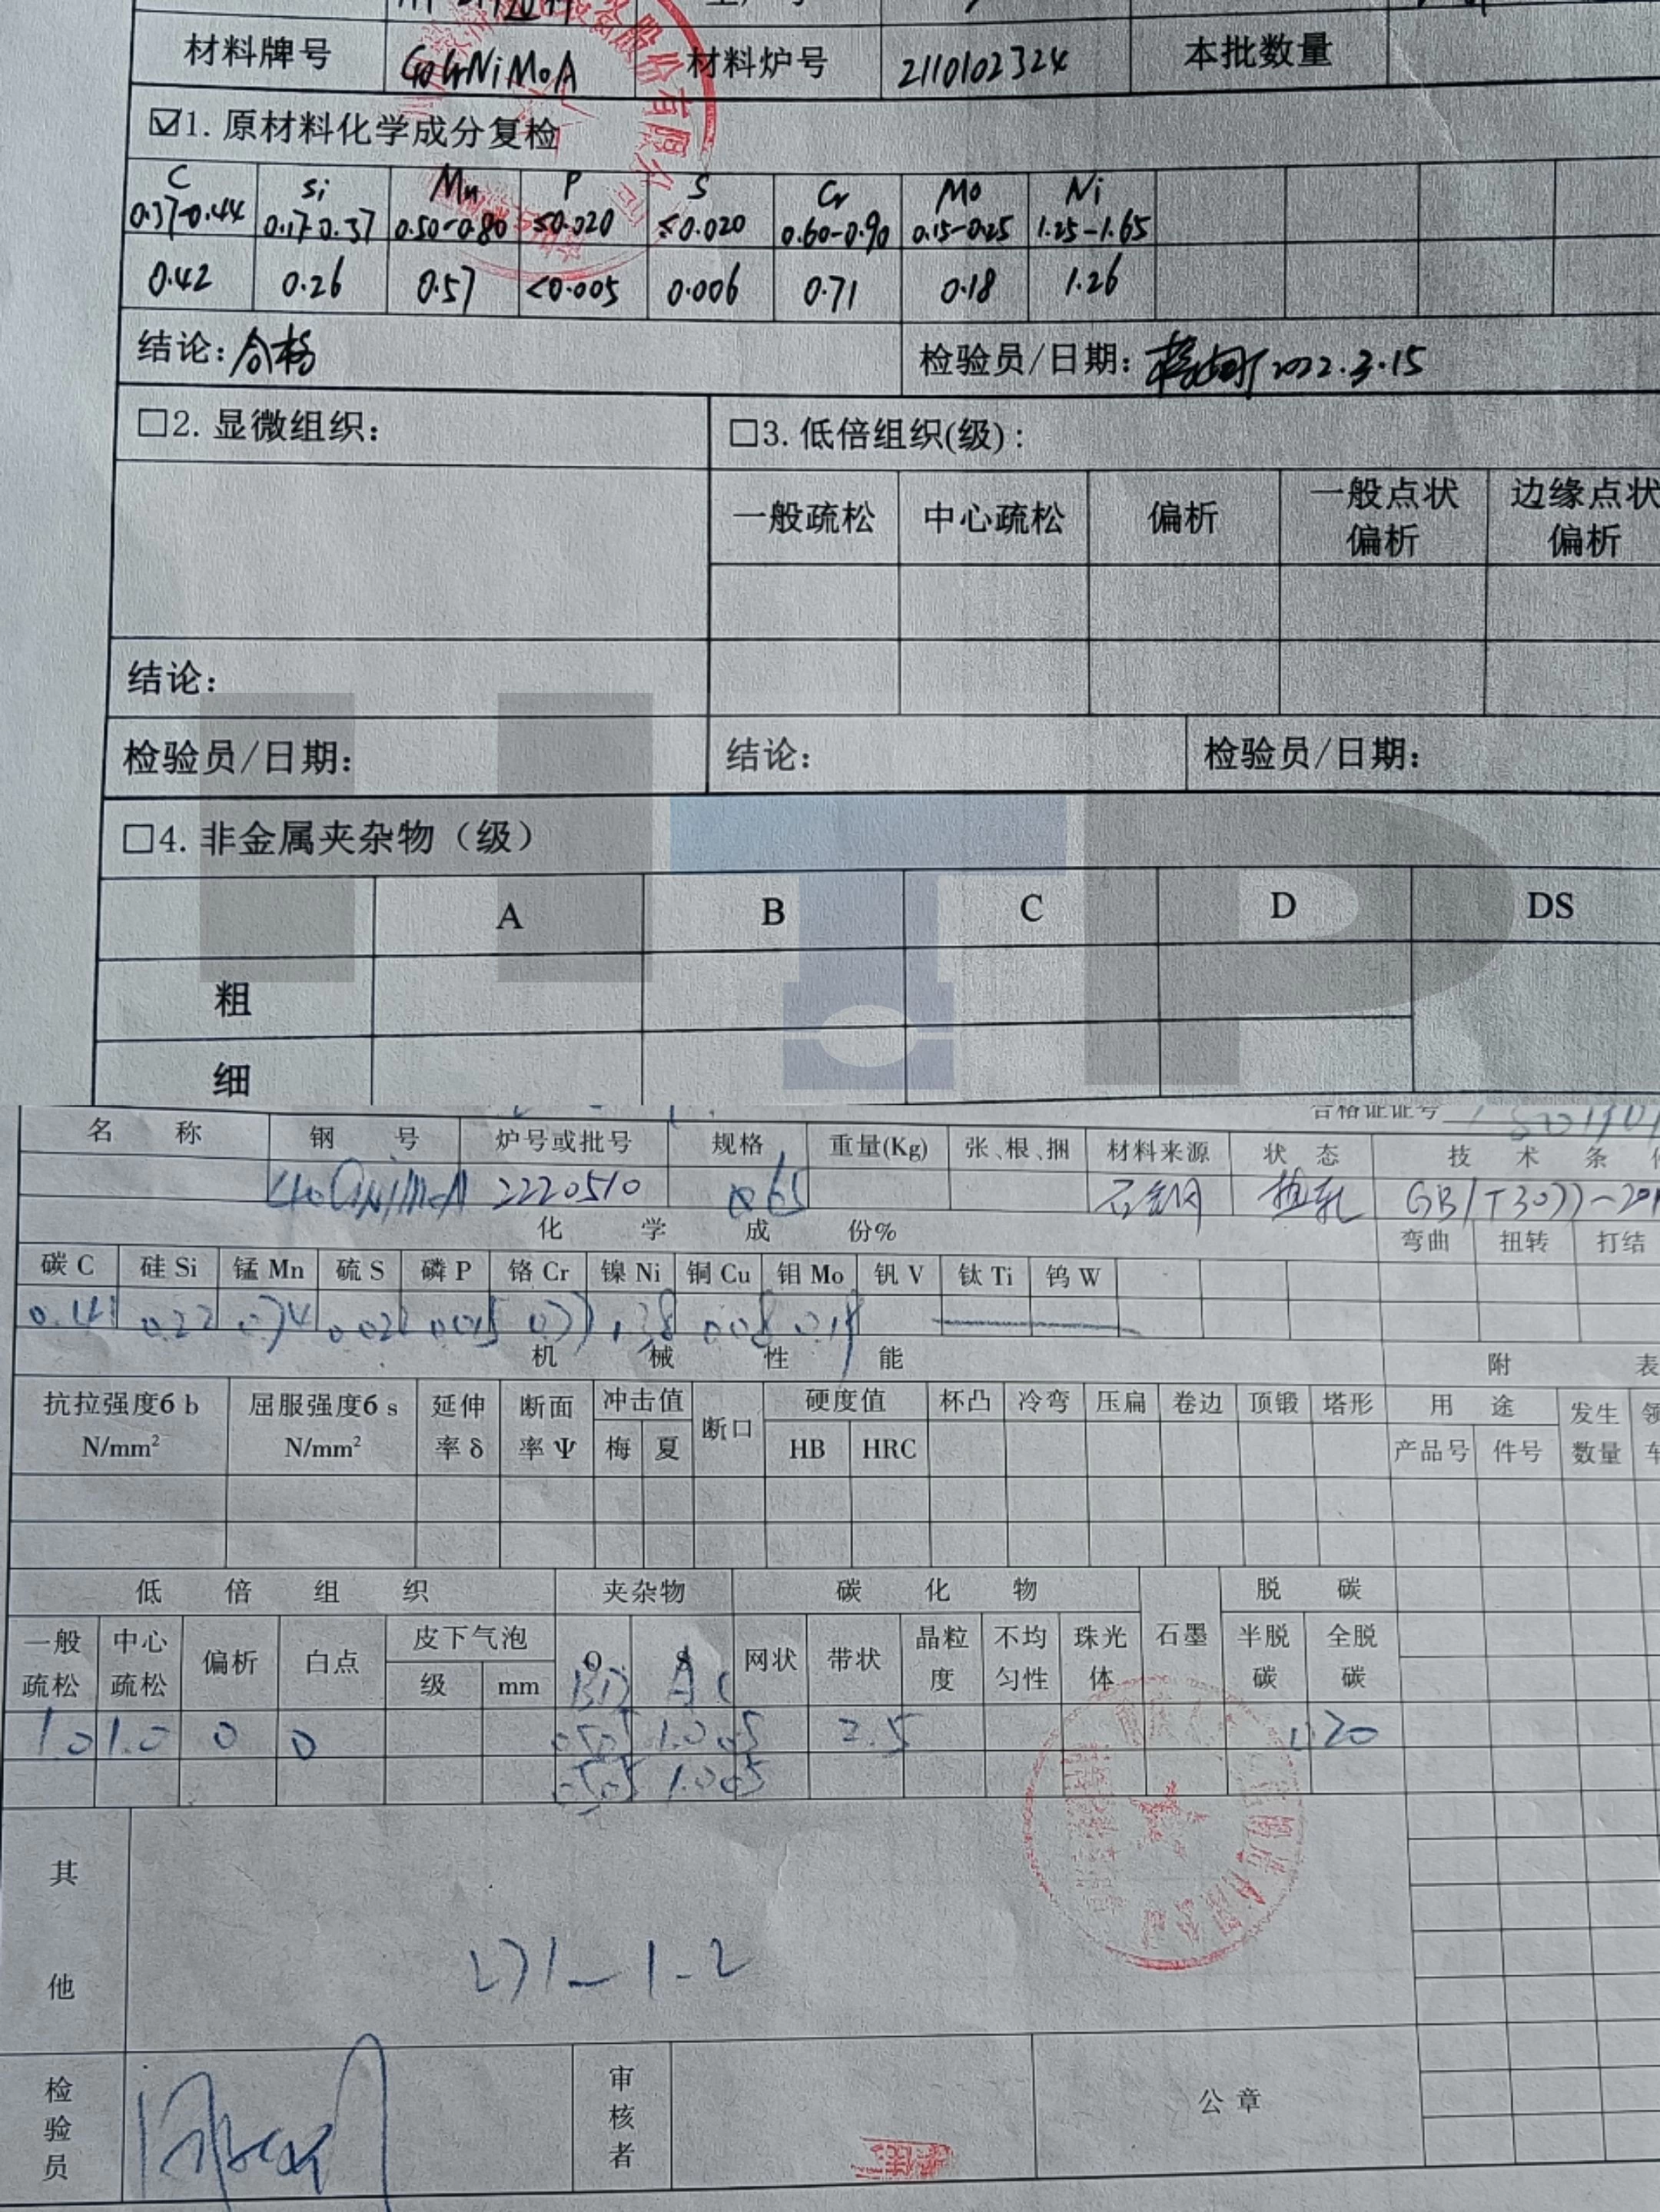 材料牌号 40CrNiMoA 材料炉号 2110102324 本批数量
☑1. 原材料化学成分复检
C Si Mn P S Cr Mo Ni
0.37-0.44 0.17-0.37 0.50-0.80 ≤0.020 ≤0.020 0.60-0.90 0.15-0.25 1.25-1.65
0.42 0.26 0.57 <0.005 0.006 0.71 0.18 1.26
结论: 合格 检验员/日期: 2022.3.15
□2. 显微组织: □3. 低倍组织(级):
一般疏松 中心疏松 偏析 一般点状偏析 边缘点状偏析
结论:
检验员/日期: 结论: 检验员/日期:
□4. 非金属夹杂物（级）
A B C D DS
粗
细
HTP
合格证证号
名称 钢号 炉号或批号 规格 重量(Kg) 张、根、捆 材料来源 状态 技术条
40CrNiMoA 2220510 石钢 热轧 GB/T3077-201
化学成份%
弯曲 扭转 打结
碳C 硅Si 锰Mn 硫S 磷P 铬Cr 镍Ni 铜Cu 钼Mo 钒V 钛Ti 钨W
0.41 0.22 0.74 1.38 0.08
机械性能 附表
抗拉强度б b N/mm² 屈服强度б s N/mm² 延伸率δ 断面率Ψ 冲击值 断口 硬度值 杯凸 冷弯 压扁 卷边 顶锻 塔形 用途 发生数量
梅 夏 HB HRC 产品号 件号
低倍组织 夹杂物 碳化物 脱碳
一般疏松 中心疏松 偏析 白点 皮下气泡 网状 带状 晶粒度 不均匀性 珠光体 石墨 半脱碳 全脱碳
级 mm BD AC
1.0 1.0 0 0 0.5 0.5 1.0 0.5 2.5
0.5 0.5 1.0 0.5
其他
271-1-2
检验员 审核者 公章